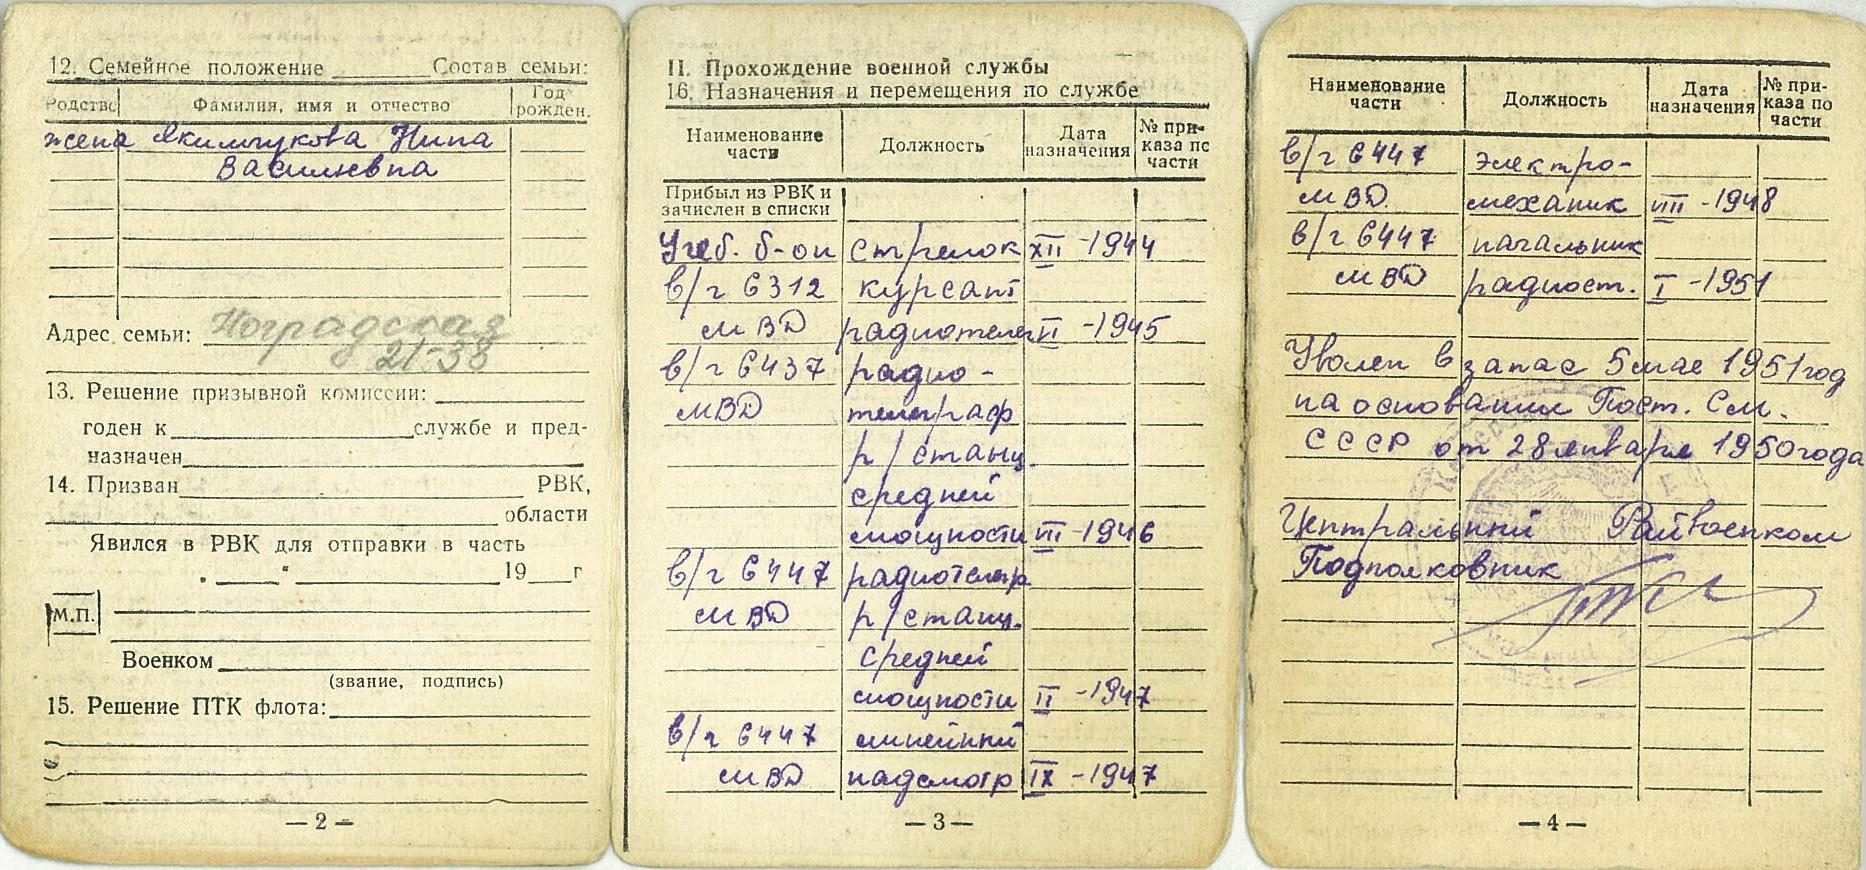 12. Семейное положение ______ Состав семьи:
Родство Фамилия, имя и отчество Год рожден.
жена Якимчукова Нина
Василиевна
Адрес семьи: Ноградская
21-38
13. Решение призывной комиссии:
годен к ______ службе и пред-
назначен
14. Призван ______ РВК,
______ области
Явился в РВК для отправки в часть
„___“ ______ 19___г
М.П.
Военком
(звание, подпись)
15. Решение ПТК флота:
— 2 —
II. Прохождение военной службы
16. Назначения и перемещения по службе
Наименование части Должность Дата назначения № при-каза по части
Прибыл из РВК и
зачислен в списки
Учеб. б-он стрелок XII -1944
в/ч 6312 курсант
МВД радиотелег II -1945
в/ч 6437 радио-
МВД телеграф
р/станц.
средней
мощности III -1946
в/ч 6447 радиотелегр
МВД р/станц.
средней
мощности II -1947
в/ч 6447 линейный
МВД надсмотр IX -1947
— 3 —
Наименование части Должность Дата назначения № при-каза по части
в/ч 6447 электро-
МВД. механик VIII -1948
в/ч 6447 начальник
МВД радиост. I -1951
Уволен в запас 5 мае 1951 год
на основании Пост. См.
СССР от 28 января 1950 года
Центральный Райвоенком
Подполковник
— 4 —